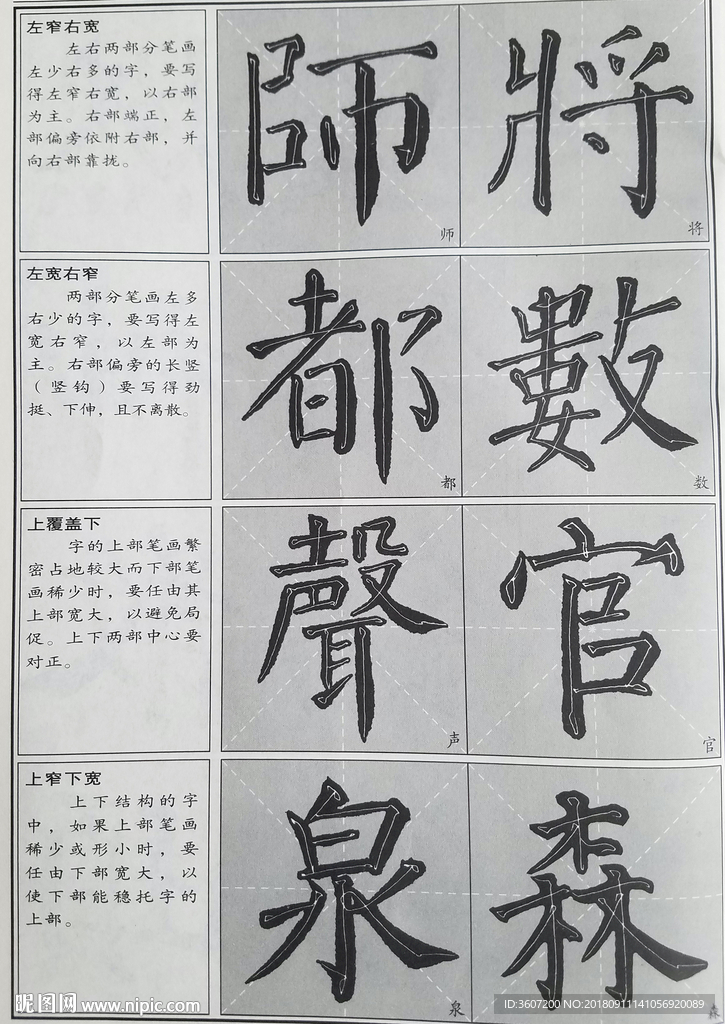 左窄右宽
左右两部分笔画
左少右多的字，要写
得左窄右宽，以右部
为主。右部端正，左
部偏旁依附右部，并
向右部靠拢。
師
师
將
将
左宽右窄
两部分笔画左多
右少的字，要写得左
宽右窄，以左部为
主。右部偏旁的长竖
（竖钩）要写得劲
挺、下伸，且不离散。
都
都
數
数
上覆盖下
字的上部笔画繁
密占地较大而下部笔
画稀少时，要任由其
上部宽大，以避免局
促。上下两部中心要
对正。
聲
声
官
官
上窄下宽
上下结构的字
中，如果上部笔画
稀少或形小时，要
任由下部宽大，以
使下部能稳托字的
上部。
泉
泉
森
森
昵图网 www.nipic.com
ID:3607200 NO:20180911141056920089